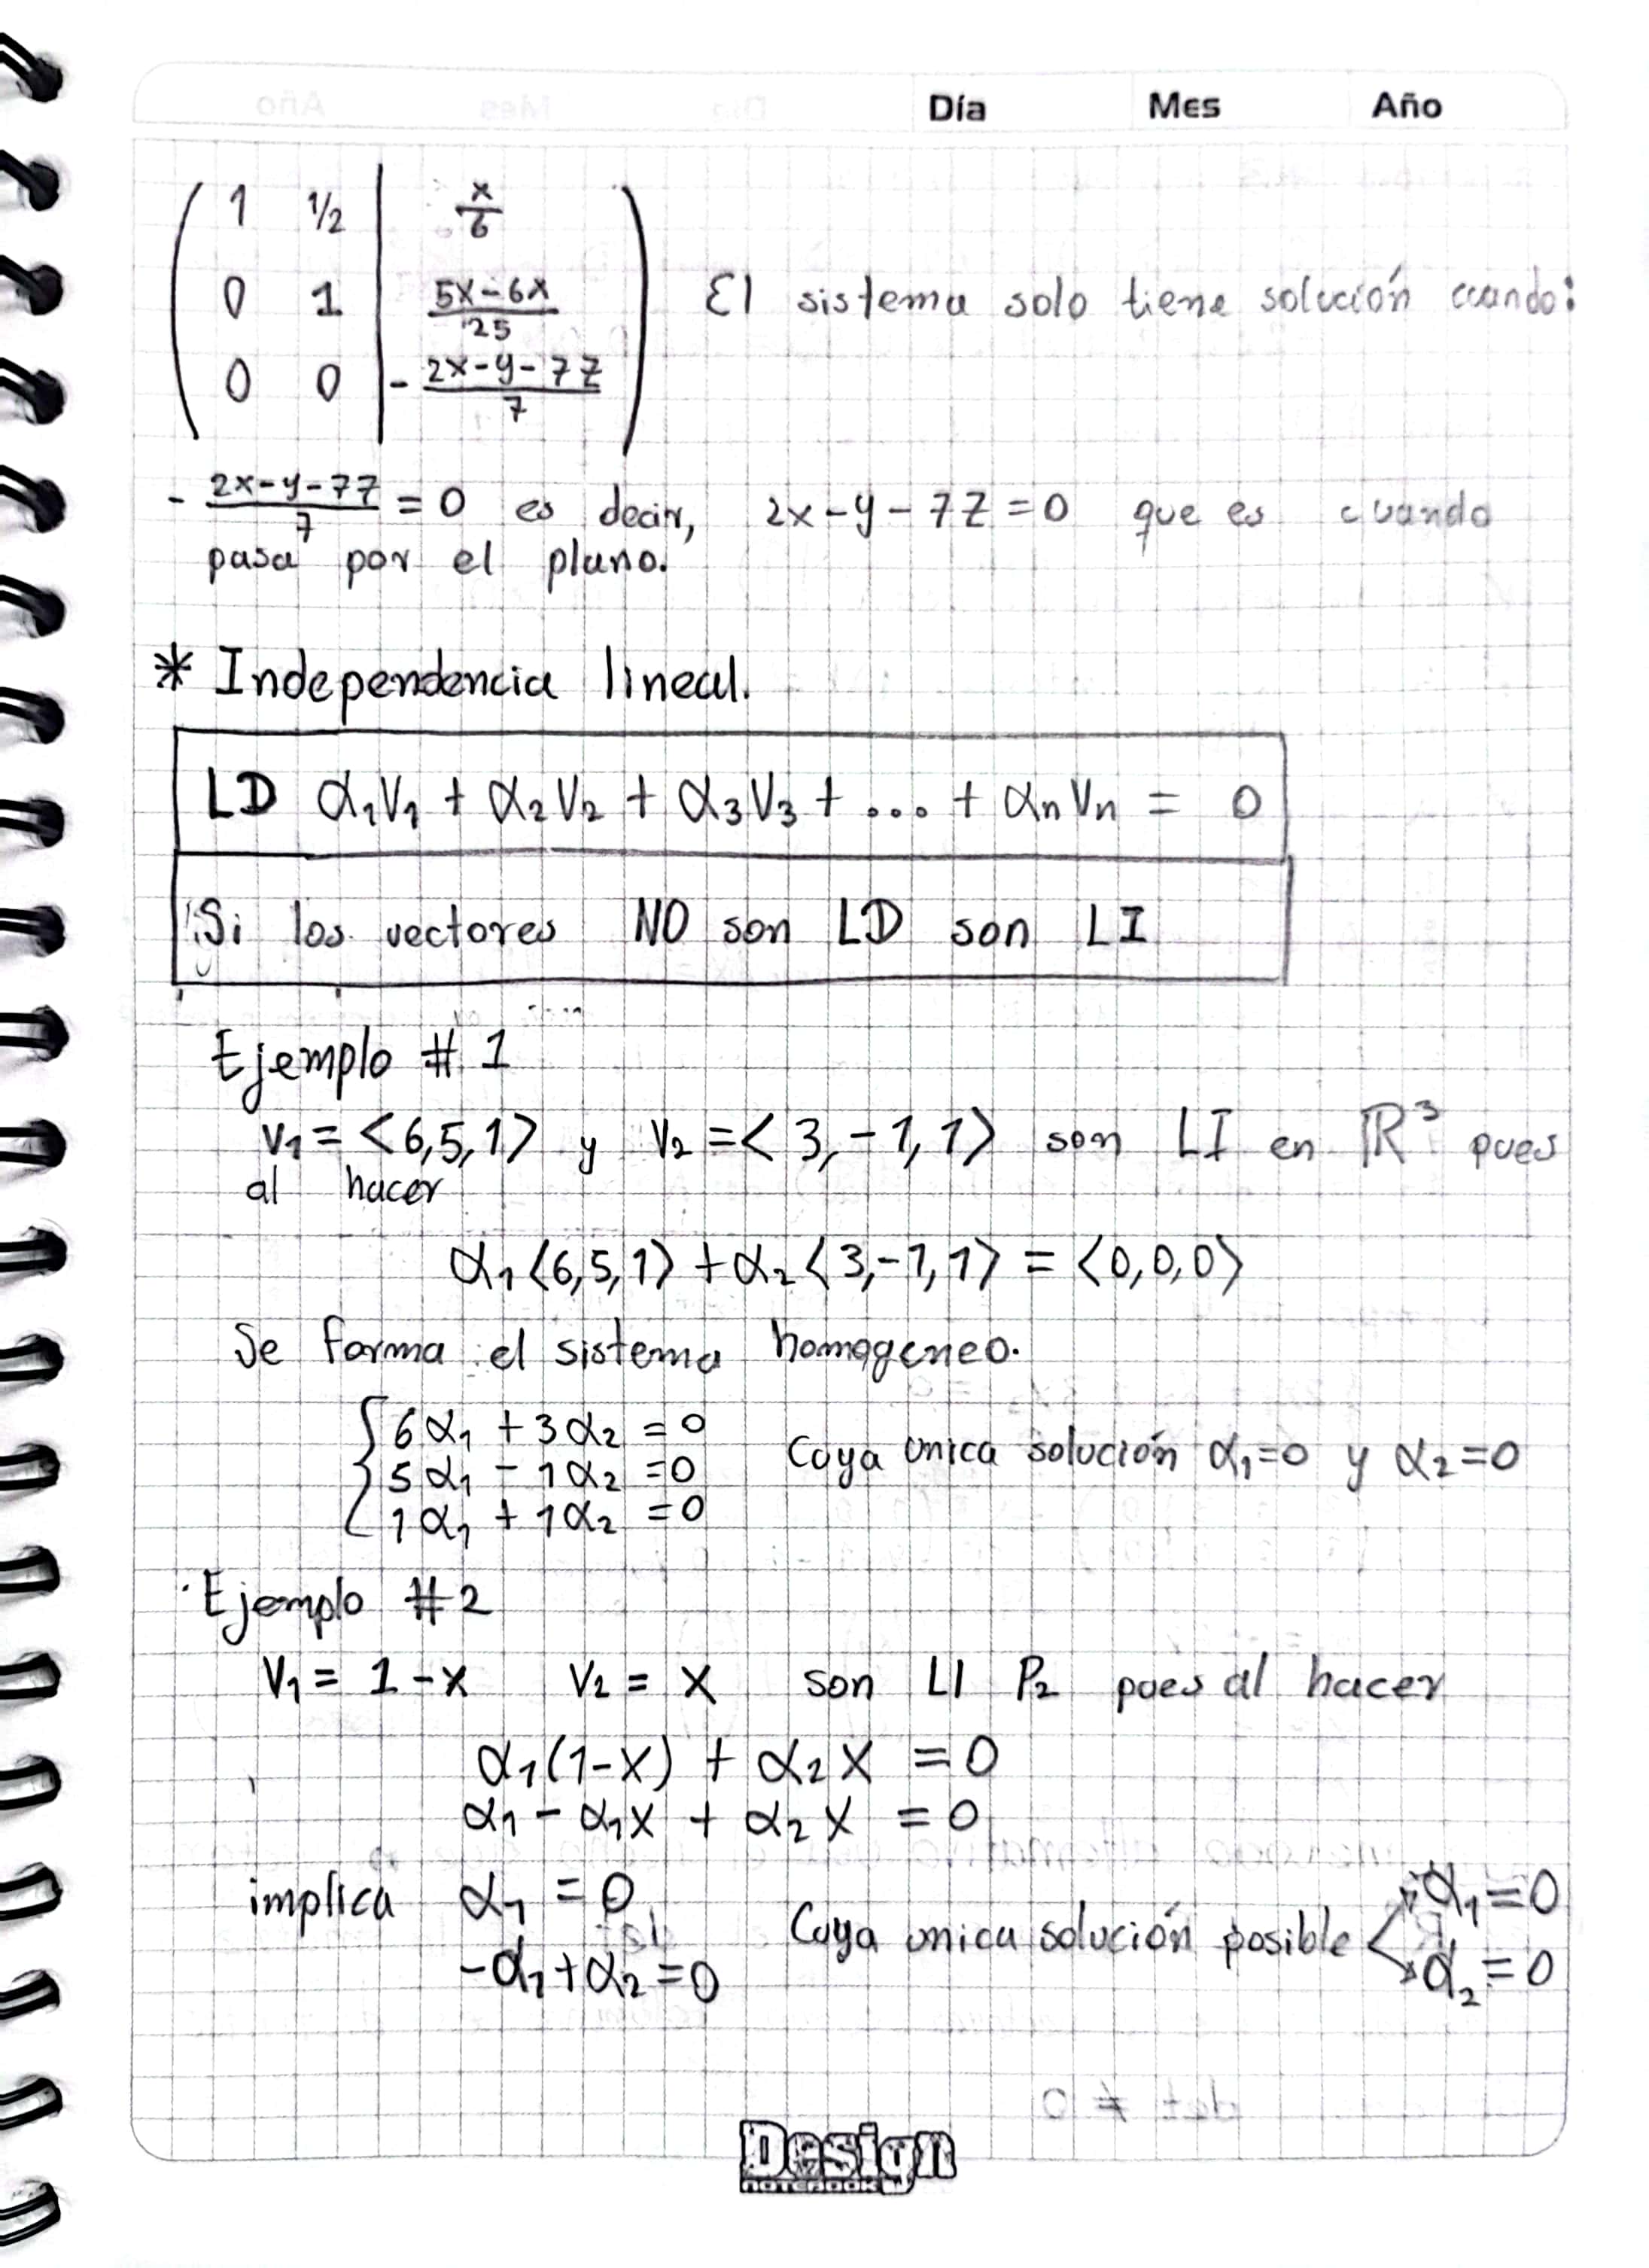 Día Mes Año
1 1/2 | x/6
0 1 | 5x-6x/25 El sistema solo tiene solución cuando:
0 0 | - 2x-y-7z/7
- 2x-y-7z/7 = 0 es decir, 2x-y-7z=0 que es cuando
pasa por el plano.
* Independencia lineal.
LD α₁v₁ + α₂v₂ + α₃v₃ + ... + αnvn = 0
Si los vectores NO son LD son LI
Ejemplo # 1
v₁ = <6,5,1> y v₂ = <3,-1,1> son LI en ℝ³ pues
al hacer
α₁<6,5,1> + α₂<3,-1,1> = <0,0,0>
Se forma el sistema homogeneo.
6α₁ + 3α₂ = 0
5α₁ - 1α₂ = 0 Cuya unica solución α₁=0 y α₂=0
1α₁ + 1α₂ = 0
Ejemplo #2
V₁ = 1-x V₂ = x son LI P₂ pues al hacer
α₁(1-x) + α₂x = 0
α₁ - α₁x + α₂x = 0
implica α₁ = 0 α₁=0
Cuya unica solución posible
-α₁+α₂=0 α₂=0
Design
NOTEBOOK